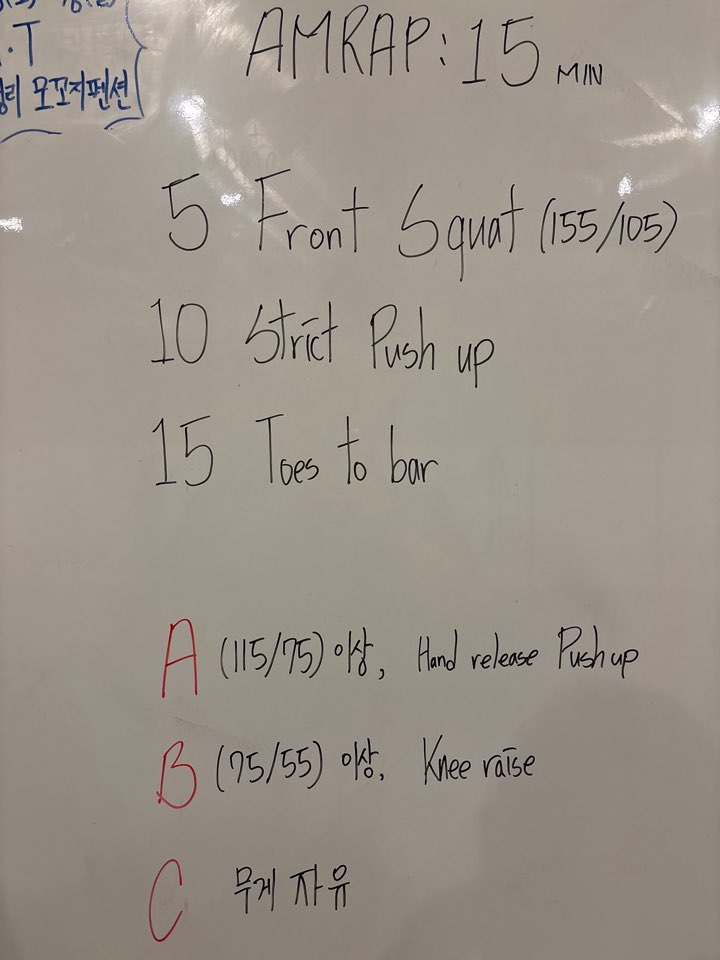 ·T
모꼬지펜션
AMRAP: 15 MIN
5 Front Squat (155/105)
10 Strict Push up
15 Toes to bar
A (115/75) 이상, Hand release Push up
B (75/55) 이상, Knee raise
C 무게 자유